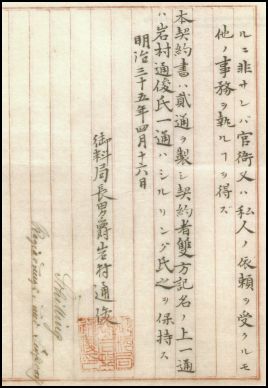 ルニ非サレバ官衙又ハ私人ノ依頼ヲ受クルモ
他ノ事務ヲ執ルヿヲ得ズ
本契約書ハ貳通ヲ製シ契約者雙方記名ノ上一通
ハ岩村通俊氏一通ハシルリング氏之ヲ保持ス
明治三十五年四月十六日
御料局長男爵岩村通俊
Schilling